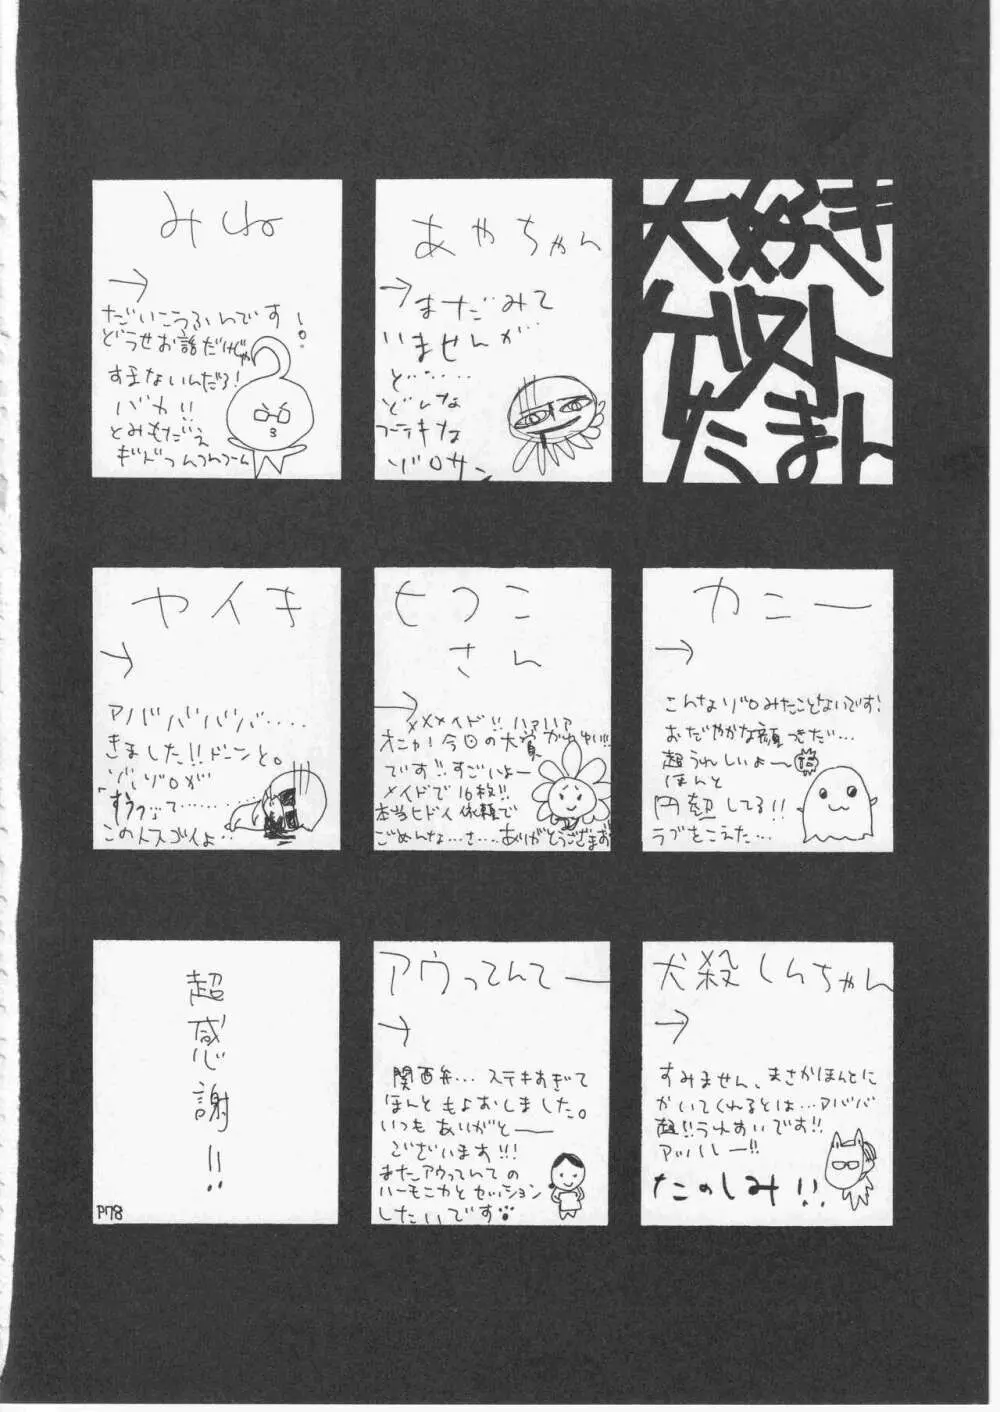 大好き
ゲスト
たまん
あやちゃん
→
まだみて
いませんが…
ど……
どんな
ステキな
ゾロサン
みね
→
だいこうふんです!
どうせお話だけじゃ
すまないんだろ!
バカ!!
とみもだえ
カニー
→
こんなゾロみたことないです!
おだやかな顔つきだ…
超うれしいよー
ほんと
円熟してる!!
ラブをこえた…
ヒフこ
さん
→
メメメイド!!ハァハァ
オニャ!今日の大賞
です!!すごいよー
メイドで16枚!!
本当ヒドイ依頼で
ごめんな…さ…ありがとうござます
ヤイキ
→
アババババ……
きました!!ドーンと。
ゾ…ゾロが
「すうっ」て……
この人スゴイよ…
犬殺しんちゃん
→
すみません、まさかほんとに
かいてくれるとは…アババ
超!!うれすいです!!
アッハレー!!
たのしみ!!
アウってんてー
→
関西弁…ステキすぎて
ほんともよおしました。
いつもありがとー
ございます!!!
またアウってんての
ハーモニカとセッション
したいです
超感謝!!
P78